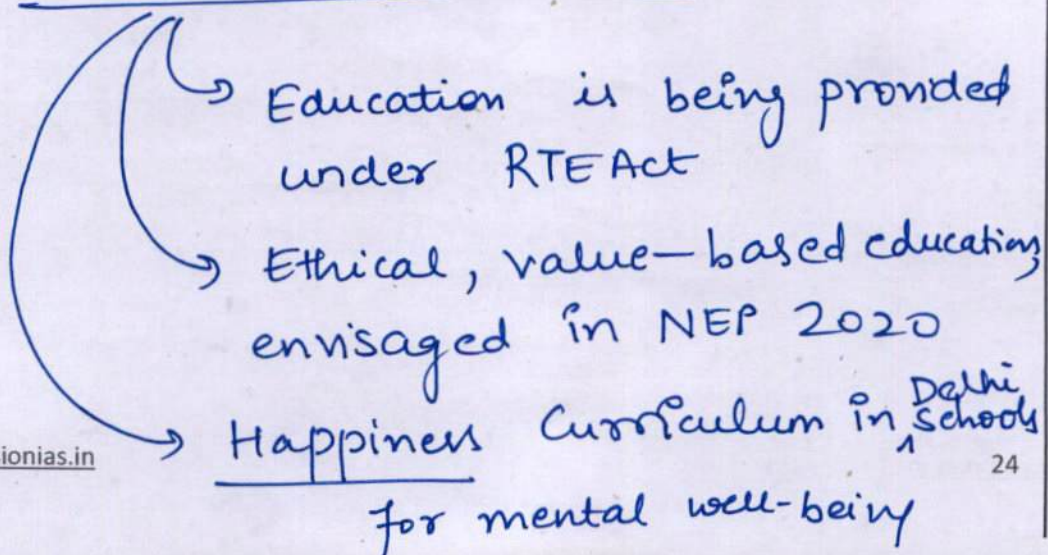 Education is being provided
under RTE Act
Ethical, value-based education,
envisaged in NEP 2020
Happiness Curriculum in Delhi Schools
ionias.in
24
for mental well-being